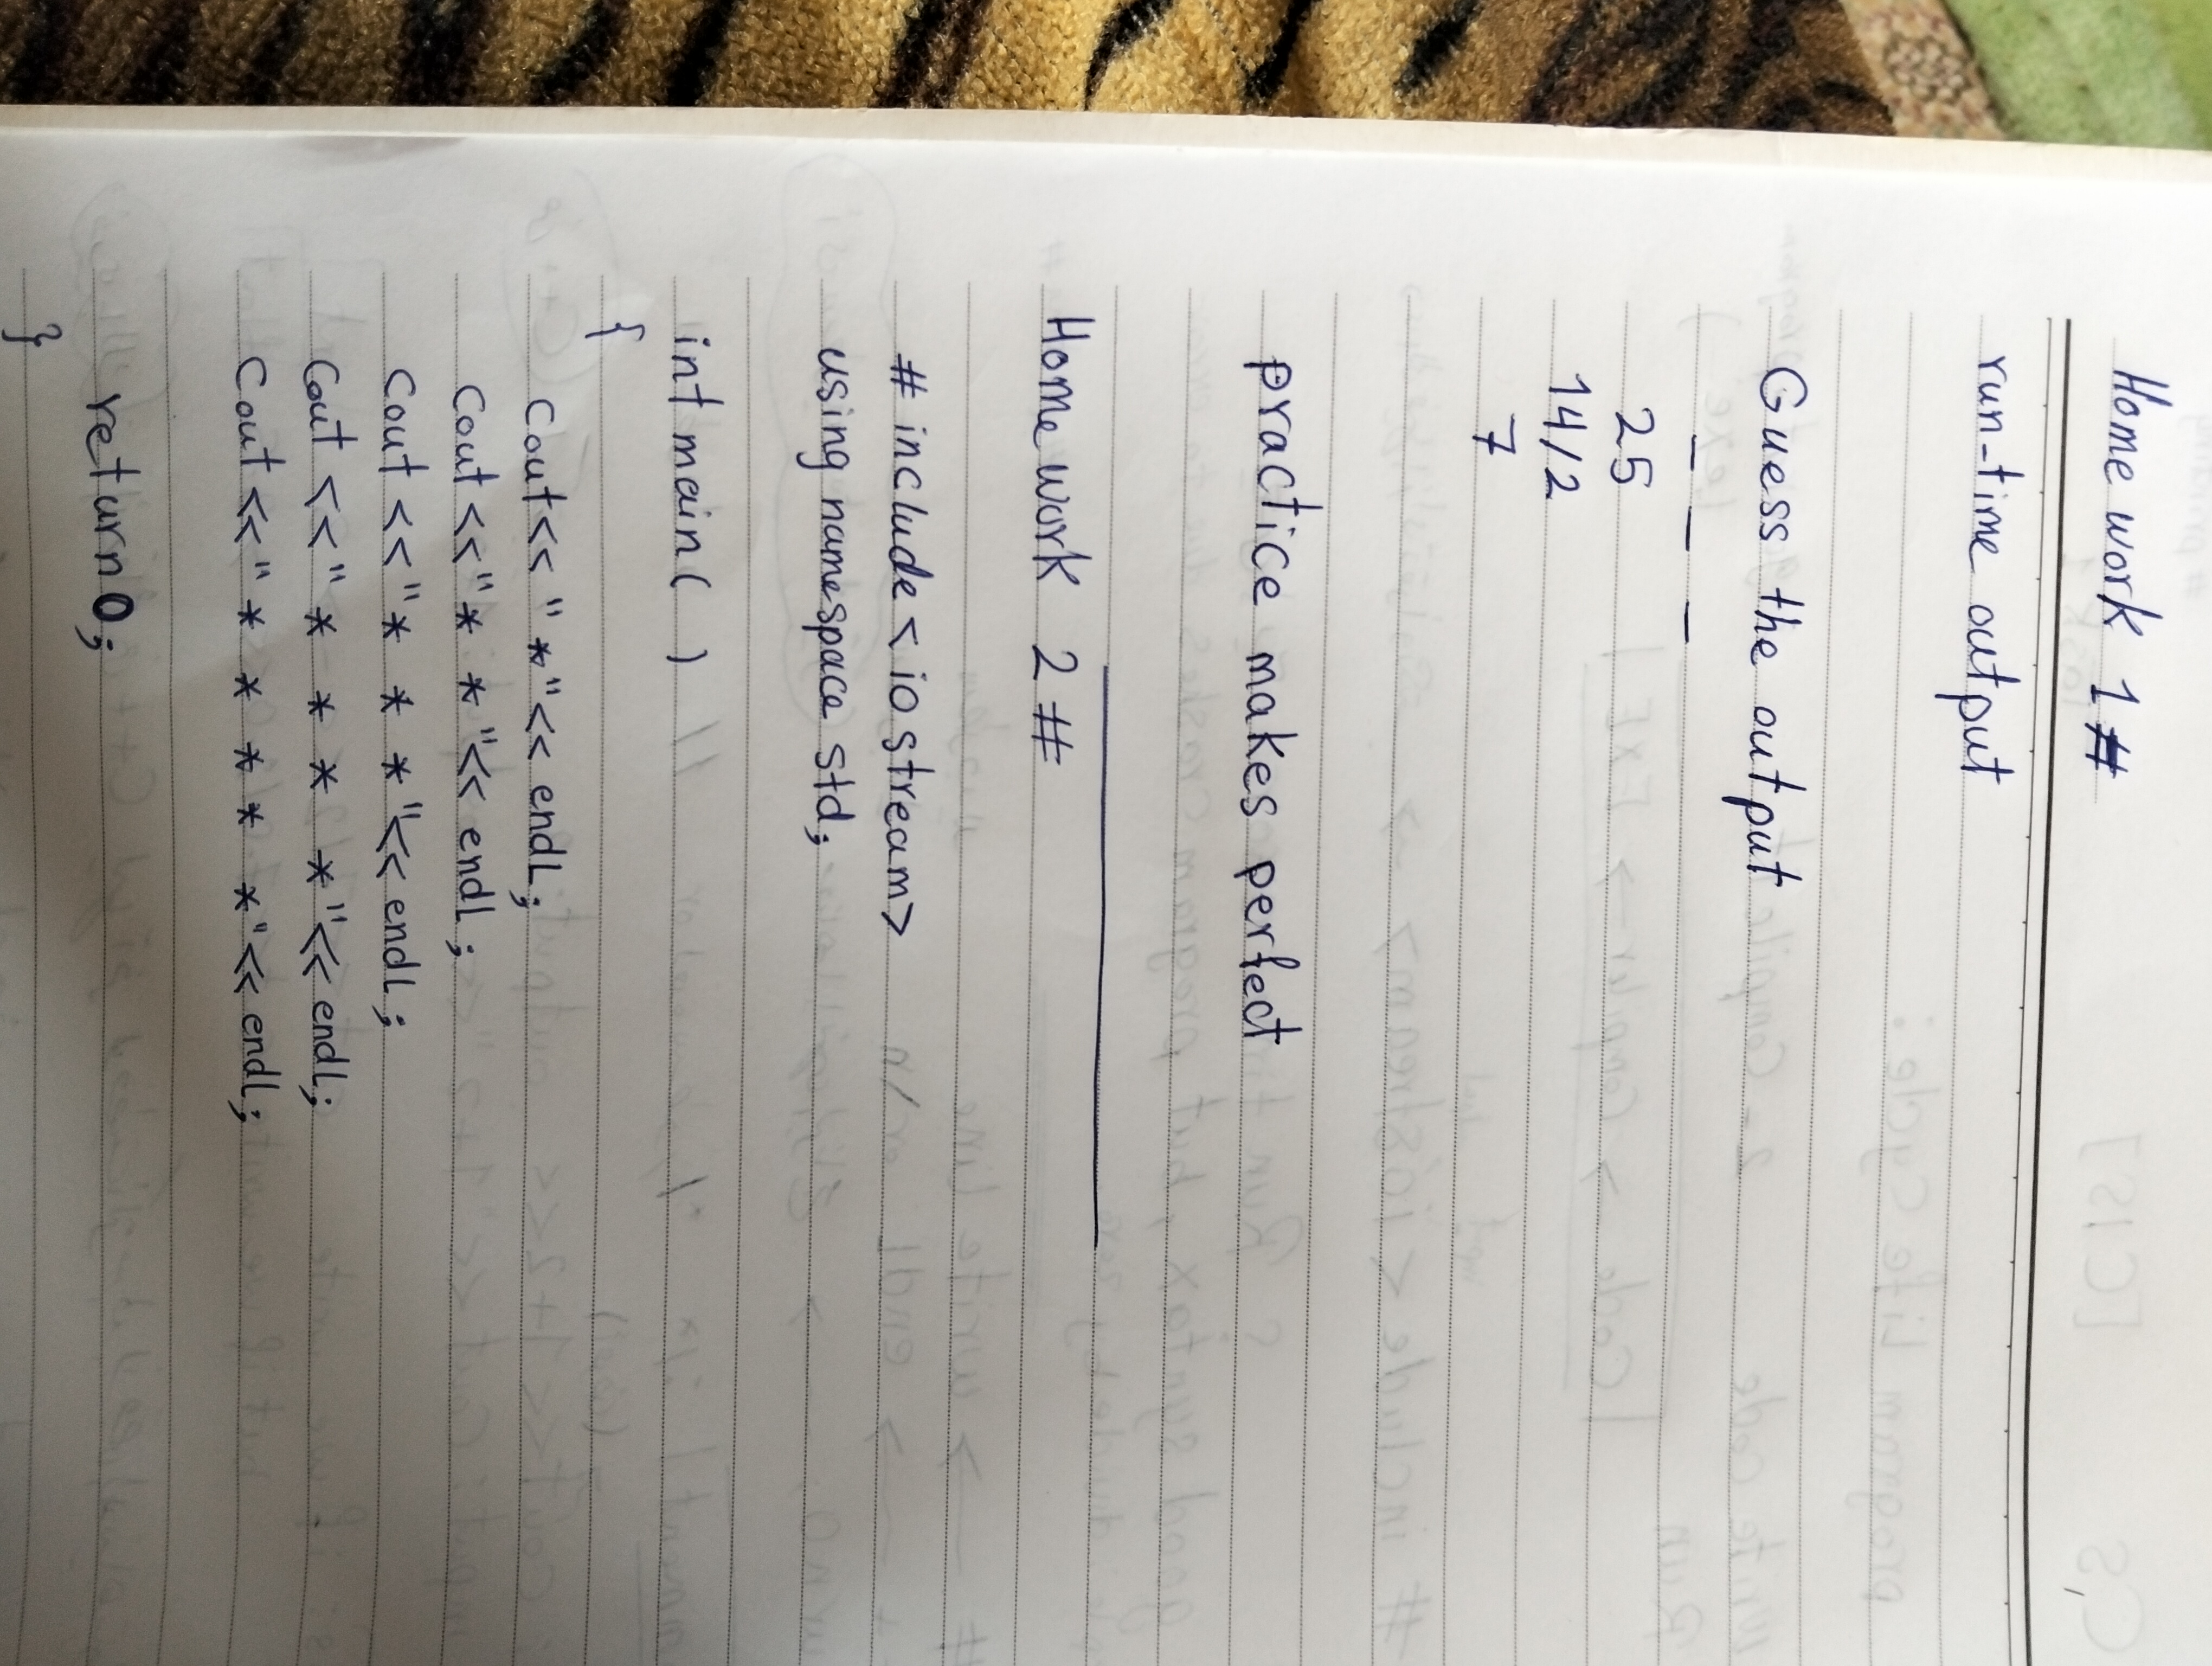 Home work 1 #
run-time output
Guess the output
_ _ _
25
14/2
7
practice makes perfect
Home work 2 #
# include < io stream>
using namespace std;
int main( )
{
Cout<< " *"<< endl;
Cout<<"* *"<< endl;
Cout <<"* * *"<< endl;
Cout <<" * * * *"<< endl;
Cout<<" * * * * *"<< endl;
return 0;
}